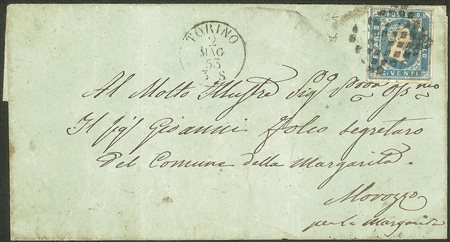 TORINO
2
MAG
53
3 S
C. VENTI
Al Molto Illustre Sig.
Il Sig. Gioanni Folco segretaro
del Comune della Margarita
Morozzo
per la Margarita